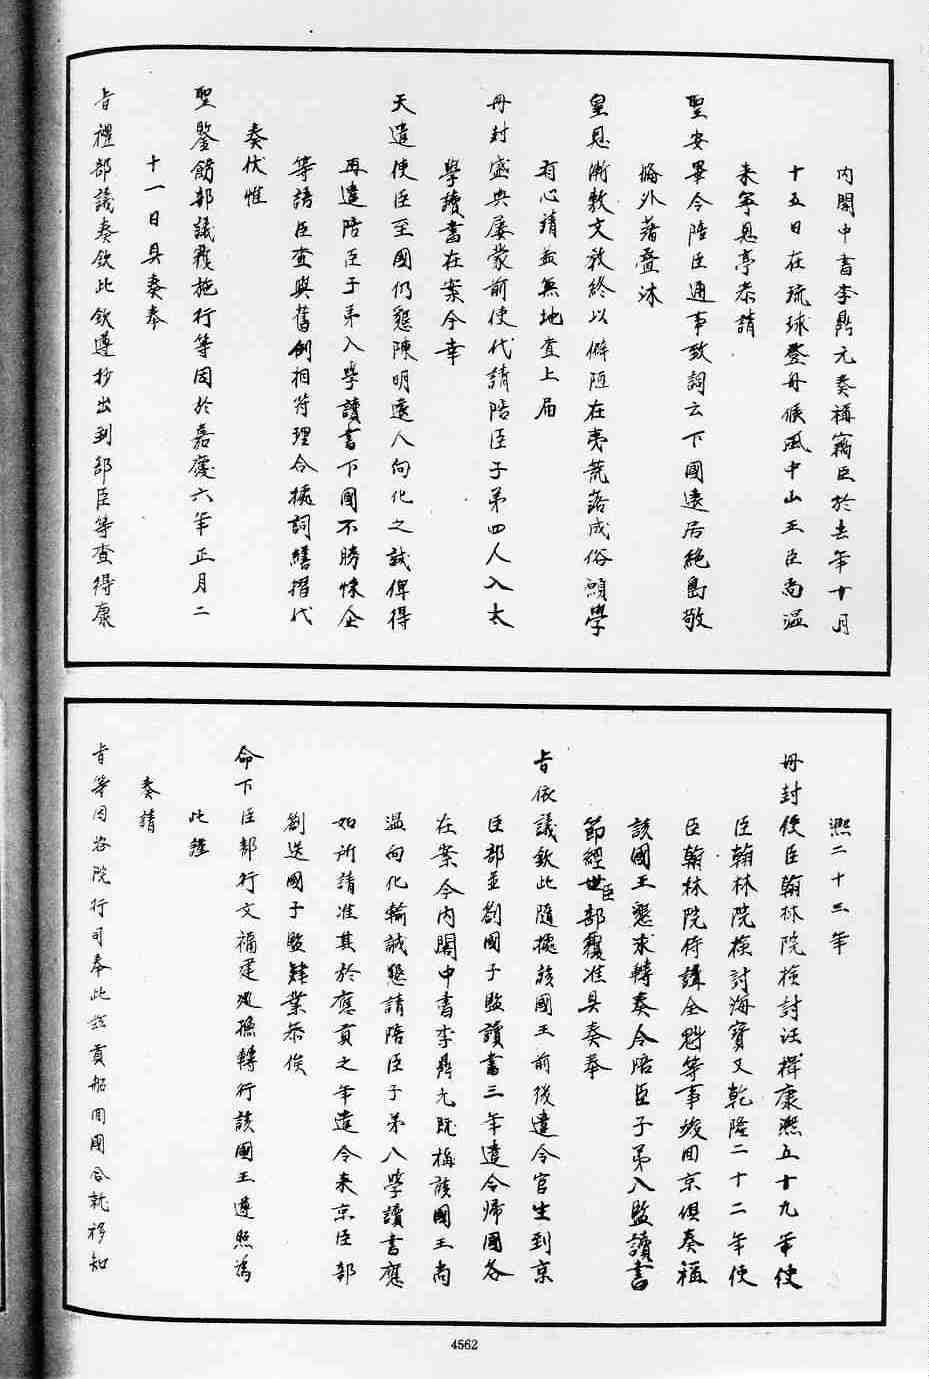 內閣中書李鼎元奏稱竊臣於去年十月
十五日在琉球登舟候風中山王臣尚温
来寧恩亭恭請
聖安畢令陪臣通事致詞云下國遠居絶島敬
悔外藩叠沐
皇恩漸敷文教終以僻陋在夷荒落成俗願學
有心請益無地查上屆
冊封盛典屡蒙前使代請陪臣子弟四人入太
學讀書在案今幸
天遣使臣至國仍懇陳明遠人向化之誠俾得
再遣陪臣子弟入學讀書下國不勝悚企
等語臣查與舊例相符理合據詞繕摺代
奏伏惟
聖鑒飭部議覆施行等因於嘉慶六年正月二
十一日具奏奉
旨禮部議奏欽此欽遵抄出到部臣等查得康
熙二十三年
冊封使臣翰林院檢討汪楫康熙五十九年使
臣翰林院檢討海寳又乾隆二十二年使
臣翰林院侍講全魁等事竣回京俱奏稱
該國王懇求轉奏令陪臣子弟入監讀書
節經世臣部覆准具奏奉
旨依議欽此隨據該國王前後遣令官生到京
臣部並劄國子監讀書三年遣令歸國各
在案今內閣中書李鼎元既稱該國王尚
温向化輸誠懇請陪臣子弟入學讀書應
如所請准其於應貢之年遣令来京臣部
劄送國子監肄業恭候
命下臣部行文福建巡撫轉行該國王遵照為
此謹
奏請
旨等因咨院行司奉此兹貢船回國合就移知
4562